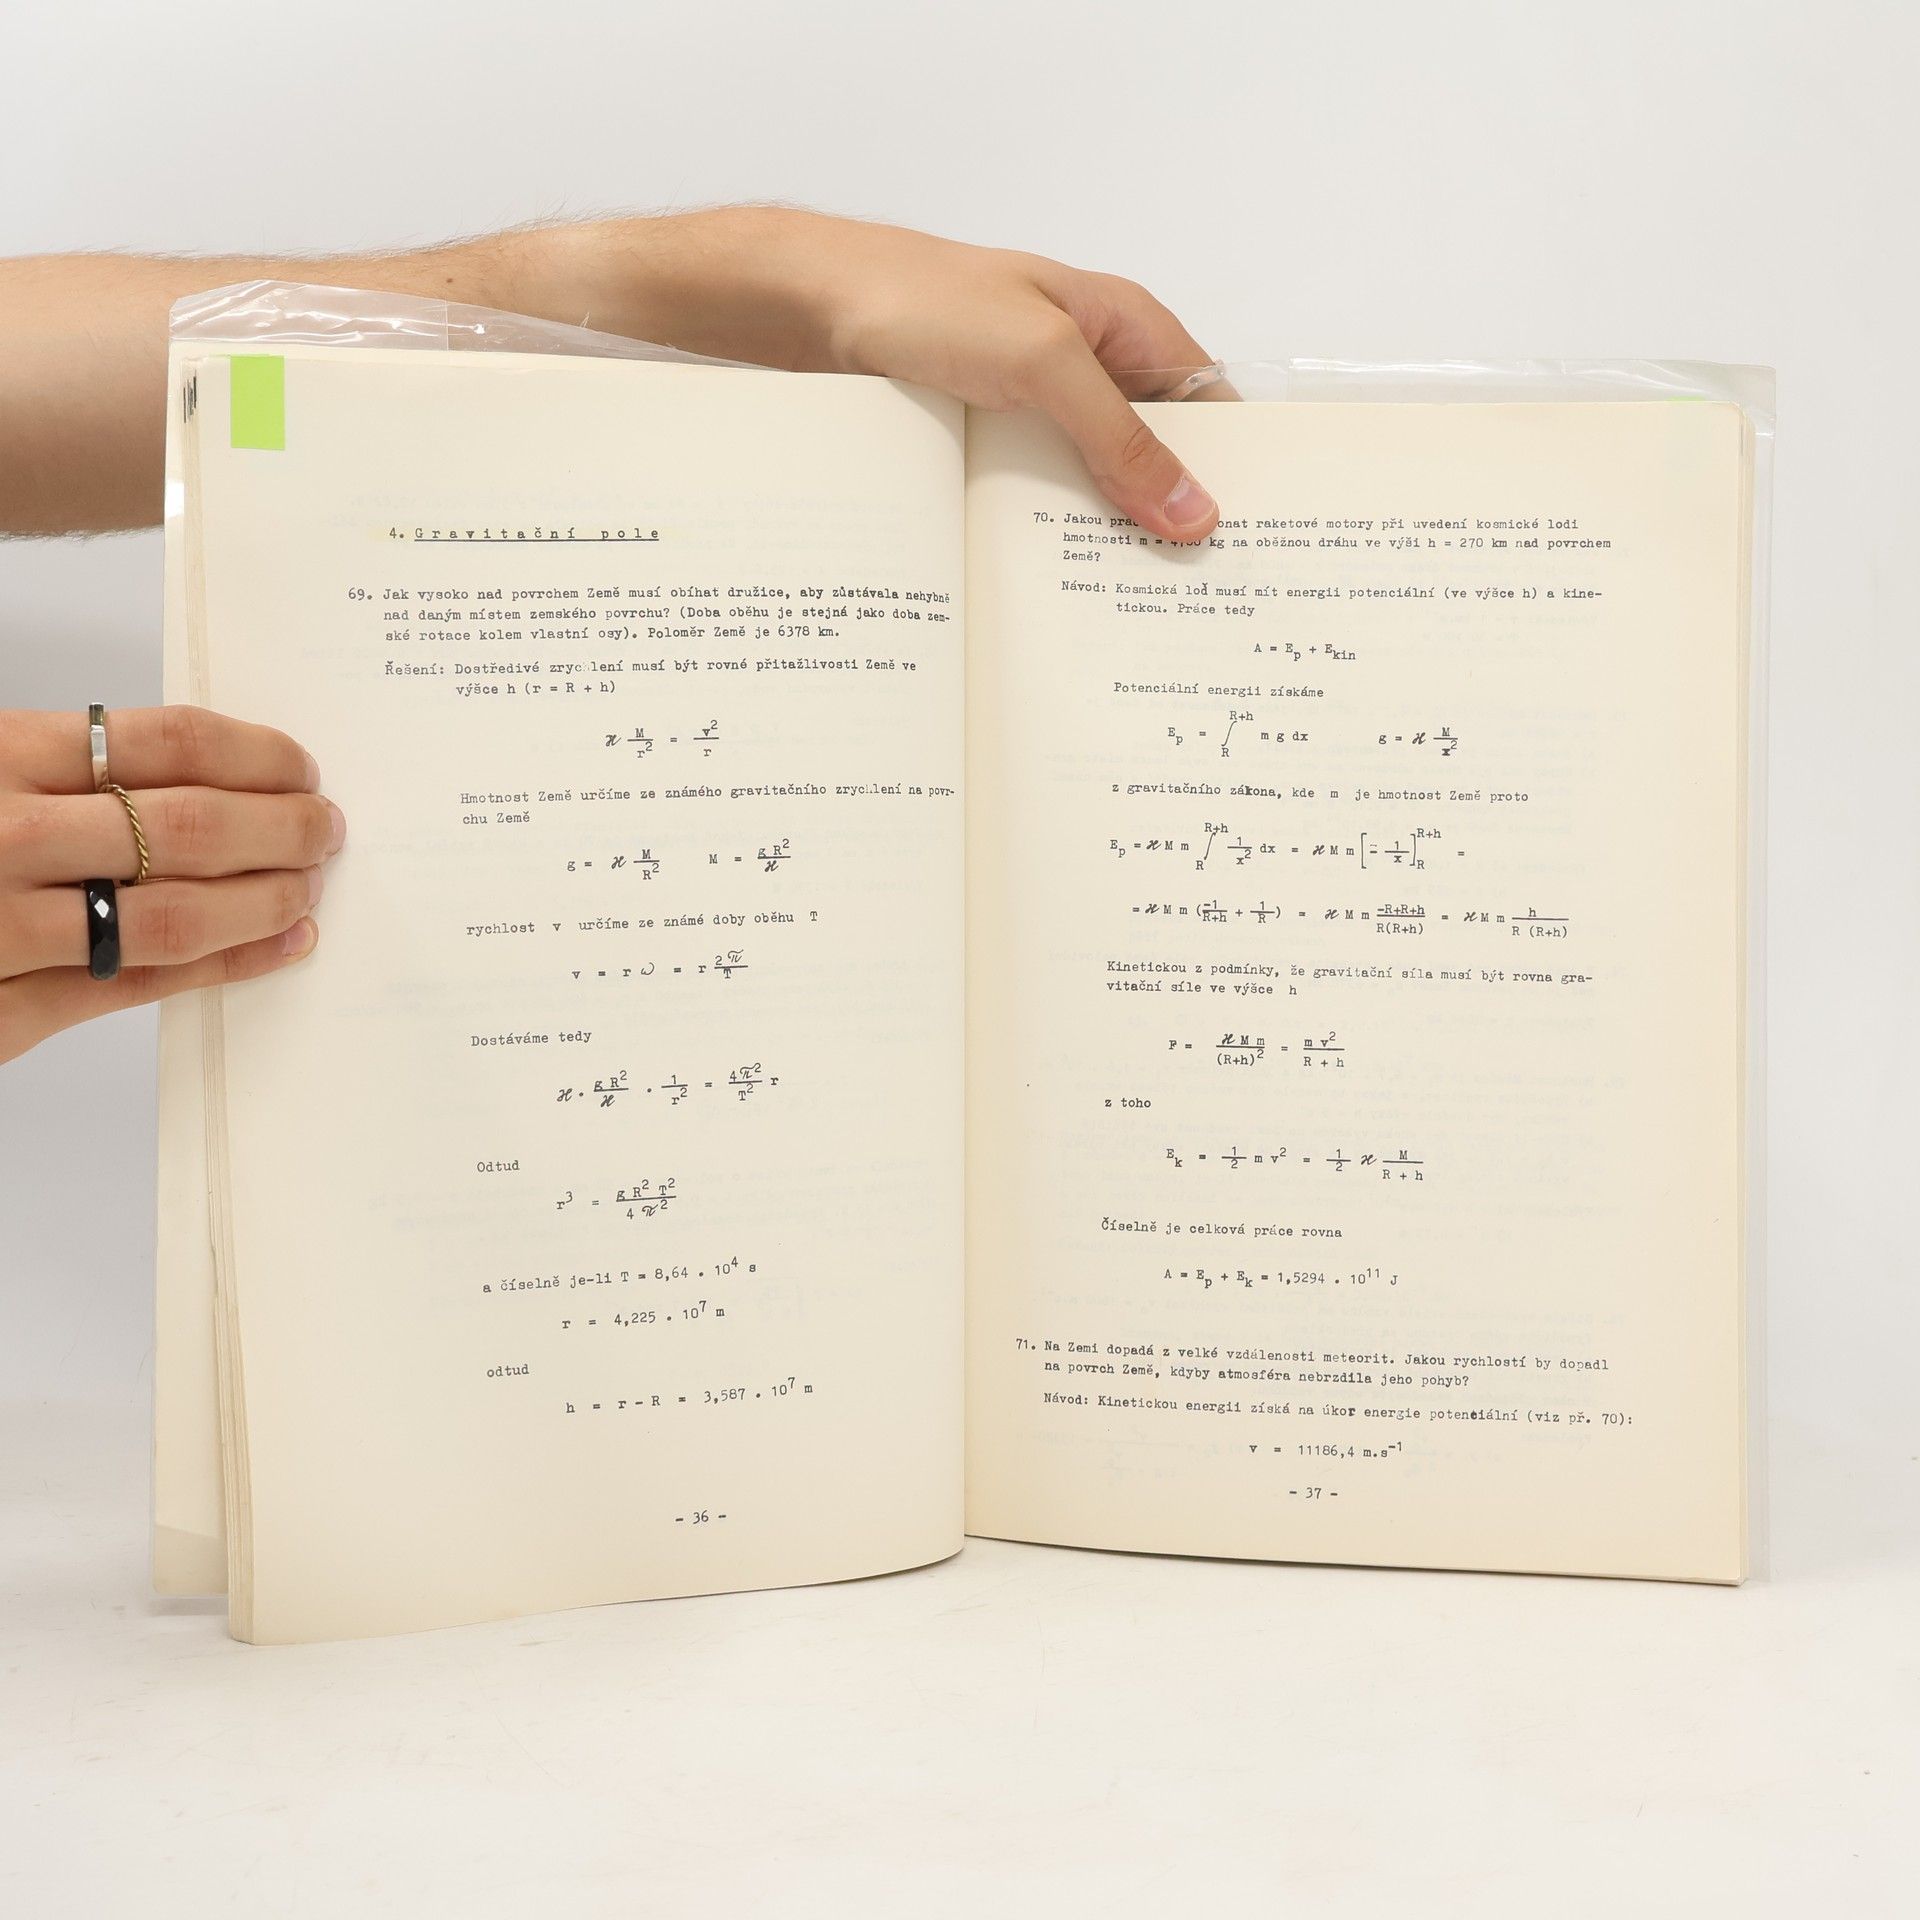 4. Gravitační pole
69. Jak vysoko nad povrchem Země musí obíhat družice, aby zůstávala nehybně
nad daným místem zemského povrchu? (Doba oběhu je stejná jako doba zem-
ské rotace kolem vlastní osy). Poloměr Země je 6378 km.
Řešení: Dostředivé zrychlení musí být rovné přitažlivosti Země ve
výšce h (r = R + h)
ϰ M/r² = v²/r
Hmotnost Země určíme ze známého gravitačního zrychlení na povr-
chu Země
g = ϰ M/R² M = g R²/ϰ
rychlost v určíme ze známé doby oběhu T
v = r ω = r 2π/T
Dostáváme tedy
ϰ . g R²/ϰ . 1/r² = 4π²/T² r
Odtud
r³ = g R² T²/4 π²
a číselně je-li T = 8,64 . 10⁴ s
r = 4,225 . 10⁷ m
odtud
h = r - R = 3,587 . 10⁷ m
- 36 -
70. Jakou raketové motory při uvedení kosmické lodi
hmotnosti m = kg na oběžnou dráhu ve výši h = 270 km nad povrchem
Země?
Návod: Kosmická loď musí mít energii potenciální (ve výšce h) a kine-
tickou. Práce tedy
A = Eₚ + Ekin
Potenciální energii získáme
Eₚ = ∫_R^{R+h} m g dx g = ϰ M/x²
z gravitačního zákona, kde m je hmotnost Země proto
Eₚ = ϰ M m ∫_R^{R+h} 1/x² dx = ϰ M m [- 1/x]_R^{R+h} =
= ϰ M m (-1/R+h + 1/R) = ϰ M m -R+R+h/R(R+h) = ϰ M m h/R (R+h)
Kinetickou z podmínky, že gravitační síla musí být rovna gra-
vitační síle ve výšce h
F = ϰ M m/(R+h)² = m v²/R + h
z toho
Eₖ = 1/2 m v² = 1/2 ϰ M/R + h
Číselně je celková práce rovna
A = Eₚ + Eₖ = 1,5294 . 10¹¹ J
71. Na Zemi dopadá z velké vzdálenosti meteorit. Jakou rychlostí by dopadl
na povrch Země, kdyby atmosféra nebrzdila jeho pohyb?
Návod: Kinetickou energii získá na úkor energie potenciální (viz př. 70):
v = 11186,4 m.s⁻¹
- 37 -